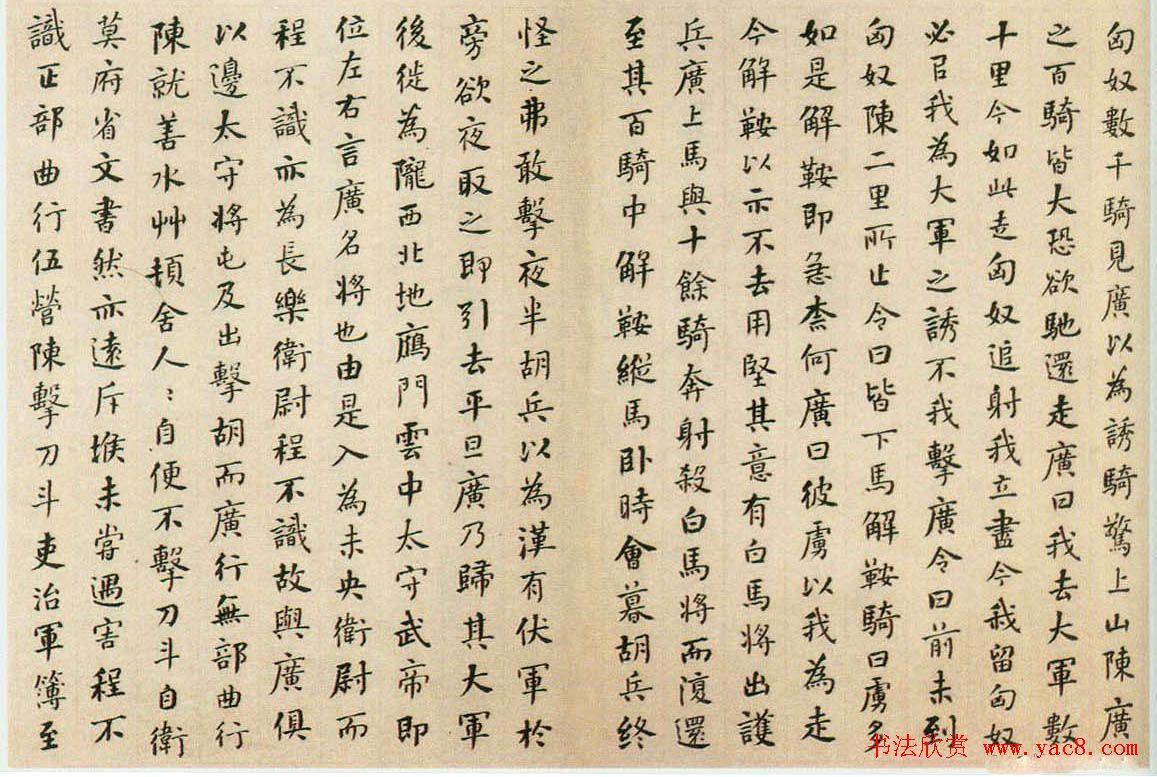 匈奴數千騎見廣以為誘騎驚上山陳廣
之百騎皆大恐欲馳還走廣曰我去大軍數
十里今如此走匈奴追射我立盡今我留匈奴
必以我為大軍之誘不我擊廣令曰前未到
匈奴陳二里所止令曰皆下馬解鞍騎曰虜多
如是解鞍即急柰何廣曰彼虜以我為走
今解鞍以示不去用堅其意有白馬將出護
兵廣上馬與十餘騎奔射殺白馬將而復還
至其百騎中解鞍縱馬臥時會暮胡兵終
怪之弗敢擊夜半胡兵以為漢有伏軍於
旁欲夜取之即引去平旦廣乃歸其大軍
後徙為隴西北地鴈門雲中太守武帝即
位左右言廣名將也由是入為未央衛尉而
程不識亦為長樂衛尉程不識故與廣俱
以邊太守將屯及出擊胡而廣行無部曲行
陳就善水艸頓舍人〻自便不擊刀斗自衛
莫府省文書然亦遠斥堠未嘗遇害程不
識正部曲行伍營陳擊刀斗吏治軍簿至
书法欣赏 www.yac8.com